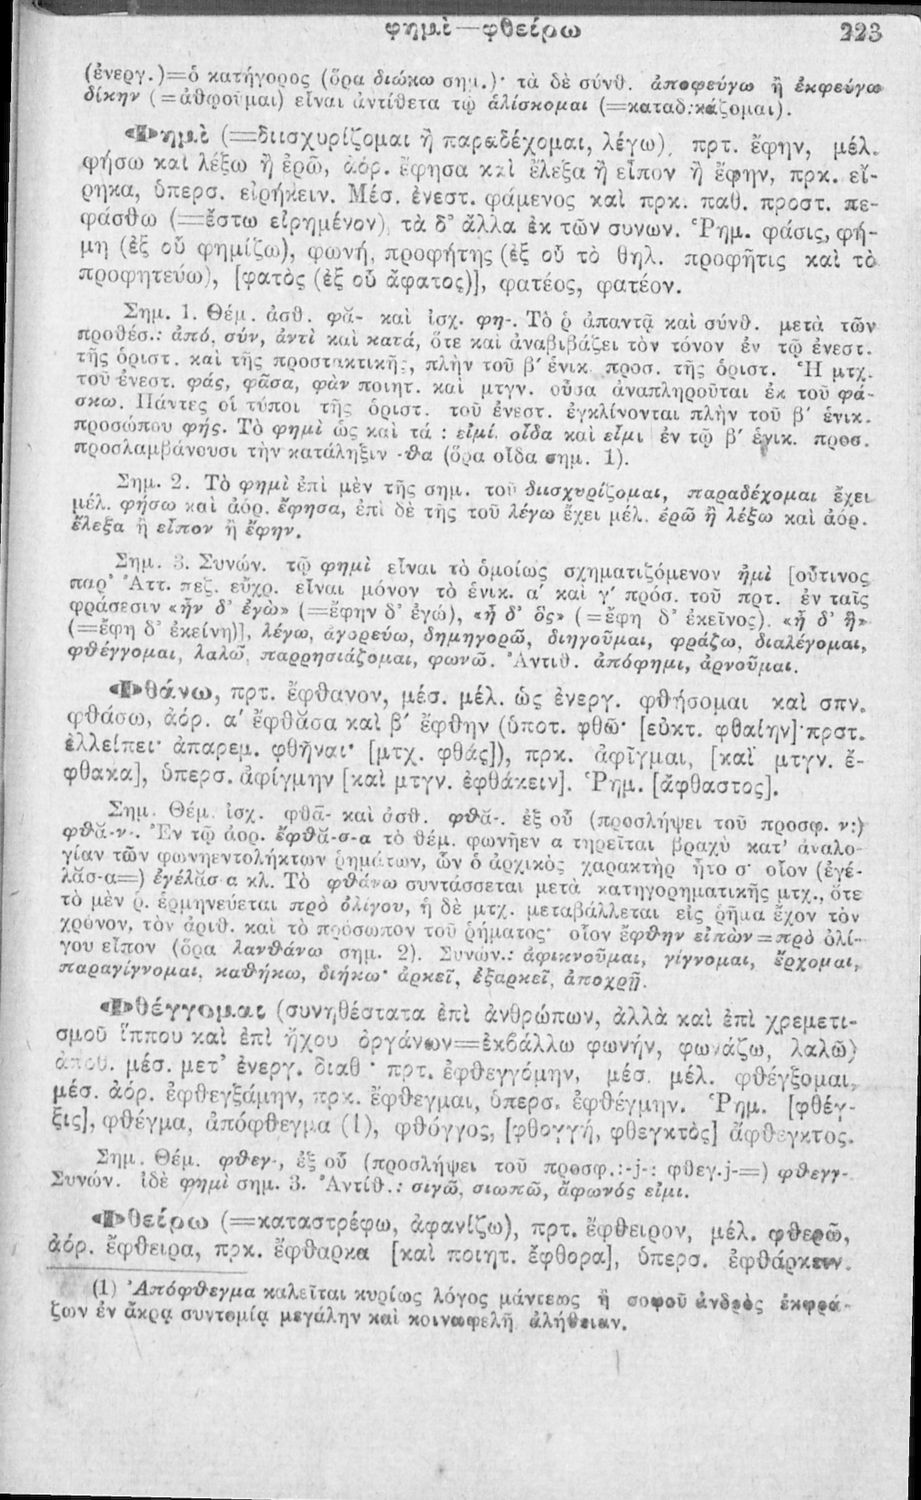 φημὶ—φθείρω 223
(ἐνεργ.)=ὁ κατήγορος (ὅρα διώκω σημ.)· τὰ δὲ σύνθ. ἀποφεύγω ἢ ἐκφεύγω
δίκην (=ἀθῳοῦμαι) εἶναι ἀντίθετα τῷ ἁλίσκομαι (=καταδικάζομαι).
Φημὶ (=διισχυρίζομαι ἢ παραδέχομαι, λέγω), πρτ. ἔφην, μέλ.
φήσω καὶ λέξω ἢ ἐρῶ, ἀόρ. ἔφησα καὶ ἔλεξα ἢ εἶπον ἢ ἔφην, πρκ. εἴ-
ρηκα, ὑπερσ. εἰρήκειν. Μέσ. ἐνεστ. φάμενος καὶ πρκ. παθ. προστ. πε-
φάσθω (=ἔστω εἰρημένον), τὰ δ' ἄλλα ἐκ τῶν συνων. Ῥημ. φάσις, φή-
μη (ἐξ οὗ φημίζω), φωνή, προφήτης (ἐξ οὗ τὸ θηλ. προφῆτις καὶ τὸ
προφητεύω), [φατὸς (ἐξ οὗ ἄφατος)], φατέος, φατέον.
Σημ. 1. Θέμ. ἀσθ. φᾰ- καὶ ἰσχ. φη-. Τὸ ῥ ἀπαντᾷ καὶ σύνθ. μετὰ τῶν
προθέσ.: ἀπό, σύν, ἀντὶ καὶ κατά, ὅτε καὶ ἀναβιβάζει τὸν τόνον ἐν τῷ ἐνεστ.
τῆς ὁριστ. καὶ τῆς προστακτικῆς, πλὴν τοῦ β' ἑνικ. προσ. τῆς ὁριστ. Ἡ μτχ.
τοῦ ἐνεστ. φάς, φᾶσα, φὰν ποιητ. καὶ μτγν. οὖσα ἀναπληροῦται ἐκ τοῦ φά-
σκω. Πάντες οἱ τύποι τῆς ὁριστ. τοῦ ἐνεστ. ἐγκλίνονται πλὴν τοῦ β' ἑνικ.
προσώπου φῄς. Τὸ φημὶ ὡς καὶ τά : εἰμί, οἶδα καὶ εἶμι ἐν τῷ β' ἑνικ. προσ.
προσλαμβάνουσι τὴν κατάληξιν -θα (ὅρα οἶδα σημ. 1).
Σημ. 2. Τὸ φημὶ ἐπὶ μὲν τῆς σημ. τοῦ διισχυρίζομαι, παραδέχομαι ἔχει
μέλ. φήσω καὶ ἀόρ. ἔφησα, ἐπὶ δὲ τῆς τοῦ λέγω ἔχει μέλ. ἐρῶ ἢ λέξω καὶ ἀόρ.
ἔλεξα ἢ εἶπον ἢ ἔφην.
Σημ. 3. Συνών. τῷ φημὶ εἶναι τὸ ὁμοίως σχηματιζόμενον ἠμὶ [οὗτινος
παρ' Ἀττ. πεζ. εὔχρ. εἶναι μόνον τὸ ἑνικ. α' καὶ γ' πρόσ. τοῦ πρτ. ἐν ταῖς
φράσεσιν «ἦν δ' ἐγὼ» (=ἔφην δ' ἐγώ), «ἦ δ' ὃς» (=ἔφη δ' ἐκεῖνος). «ἦ δ' ἣ»
(=ἔφη δ' ἐκείνη)], λέγω, ἀγορεύω, δημηγορῶ, διηγοῦμαι, φράζω, διαλέγομαι,
φθέγγομαι, λαλῶ, παρρησιάζομαι, φωνῶ. Ἀντιθ. ἀπόφημι, ἀρνοῦμαι.
Φθάνω, πρτ. ἔφθανον, μέσ. μέλ. ὡς ἐνεργ. φθήσομαι καὶ σπν.
φθάσω, ἀόρ. α' ἔφθᾰσα καὶ β' ἔφθην (ὑποτ. φθῶ· [εὐκτ. φθαίην]· πρστ.
ἐλλείπει· ἀπαρεμ. φθῆναι· [μτχ. φθάς]), πρκ. ἀφῖγμαι, [καὶ μτγν. ἔ-
φθακα], ὑπερσ. ἀφίγμην [καὶ μτγν. ἐφθάκειν]. Ῥημ. [ἄφθαστος].
Σημ. Θέμ. ἰσχ. φθᾱ- καὶ ἀσθ. φθᾰ-. ἐξ οὗ (προσλήψει τοῦ προσφ. ν:)
φθᾰ-ν-. Ἐν τῷ ἀορ. ἔφθᾰ-σ-α τὸ θέμ. φωνῆεν α τηρεῖται βραχὺ κατ' ἀναλο-
γίαν τῶν φωνηεντολήκτων ῥημάτων, ὧν ὁ ἀρχικὸς χαρακτὴρ ἦτο σ· οἷον (ἐγέ-
λᾰσ-α=) ἐγέλᾰσα κλ. Τὸ φθάνω συντάσσεται μετὰ κατηγορηματικῆς μτχ., ὅτε
τὸ μὲν ῥ. ἑρμηνεύεται πρὸ ὀλίγου, ἡ δὲ μτχ. μεταβάλλεται εἰς ῥῆμα ἔχον τὸν
χρόνον, τὸν ἀριθ. καὶ τὸ πρόσωπον τοῦ ῥήματος· οἷον ἔφθην εἰπὼν=πρὸ ὀλί-
γου εἶπον (ὅρα λανθάνω σημ. 2). Συνών.: ἀφικνοῦμαι, γίγνομαι, ἔρχομαι,
παραγίγνομαι, καθήκω, διήκω· ἀρκεῖ, ἐξαρκεῖ, ἀποχρῇ.
Φθέγγομαι (συνηθέστατα ἐπὶ ἀνθρώπων, ἀλλὰ καὶ ἐπὶ χρεμετι-
σμοῦ ἵππου καὶ ἐπὶ ἤχου ὀργάνων=ἐκβάλλω φωνήν, φωνάζω, λαλῶ)
ἀποθ. μέσ. μετ' ἐνεργ. διαθ· πρτ. ἐφθεγγόμην, μέσ. μέλ. φθέγξομαι,
μέσ. ἀόρ. ἐφθεγξάμην, πρκ. ἔφθεγμαι, ὑπερσ. ἐφθέγμην. Ῥημ. [φθέγ-
ξις], φθέγμα, ἀπόφθεγμα (1), φθόγγος, [φθογγή, φθεγκτὸς] ἄφθεγκτος.
Σημ. Θέμ. φθεγ-, ἐξ οὗ (προσλήψει τοῦ προσφ.:-j-: φθεγ.j-=) φθεγγ-
Συνών. ἰδὲ φημὶ σημ. 3. Ἀντίθ.: σιγῶ, σιωπῶ, ἄφωνός εἰμι.
Φθείρω (=καταστρέφω, ἀφανίζω), πρτ. ἔφθειρον, μέλ. φθερῶ,
ἀόρ. ἔφθειρα, πρκ. ἔφθαρκα [καὶ ποιητ. ἔφθορα], ὑπερσ. ἐφθάρκειν.
(1) Ἀπόφθεγμα καλεῖται κυρίως λόγος μάντεως ἢ σοφοῦ ἀνδρὸς ἐκφρά-
ζων ἐν ἄκρᾳ συντομίᾳ μεγάλην καὶ κοινωφελῆ ἀλήθειαν.